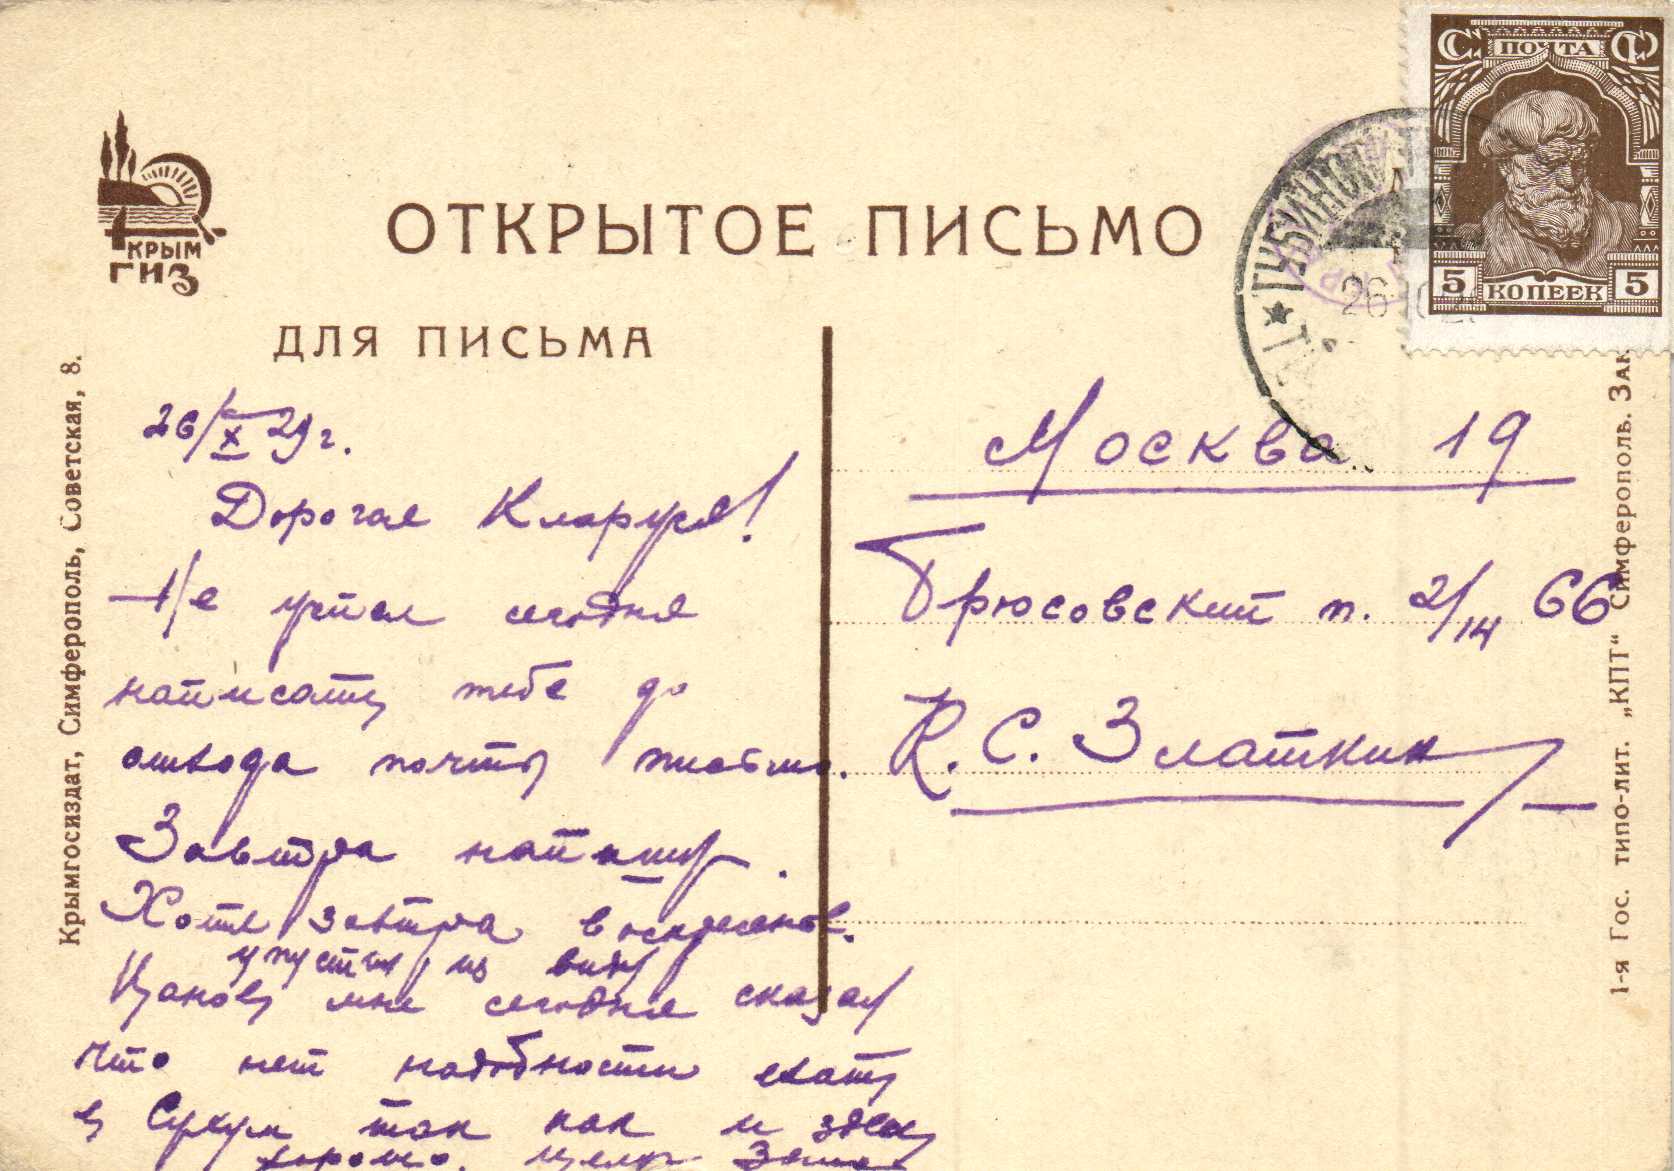 ПОЧТА
5 КОПЕЕК 5
КРЫМ
ГИЗ
ОТКРЫТОЕ ПИСЬМО
ДЛЯ ПИСЬМА
★ ГУБИНСКОЕ
26
Крымгосиздат, Симферополь, Советская, 8.
26/X 29г.
Дорогая Кларуся!
Не успел сегодня
написать тебе до
отхода почты письмо.
Завтра напишу.
Хотя завтра воскресенье.
упустил из виду
мне сегодня сказал
что нет надобности ехать
в Сухум так как и здесь
хорошо.
Москва 19
Брюсовский п. 2/14 66
К. С. Златкин
1-я Гос. типо-лит. „КПТ“ Симферополь. Зак